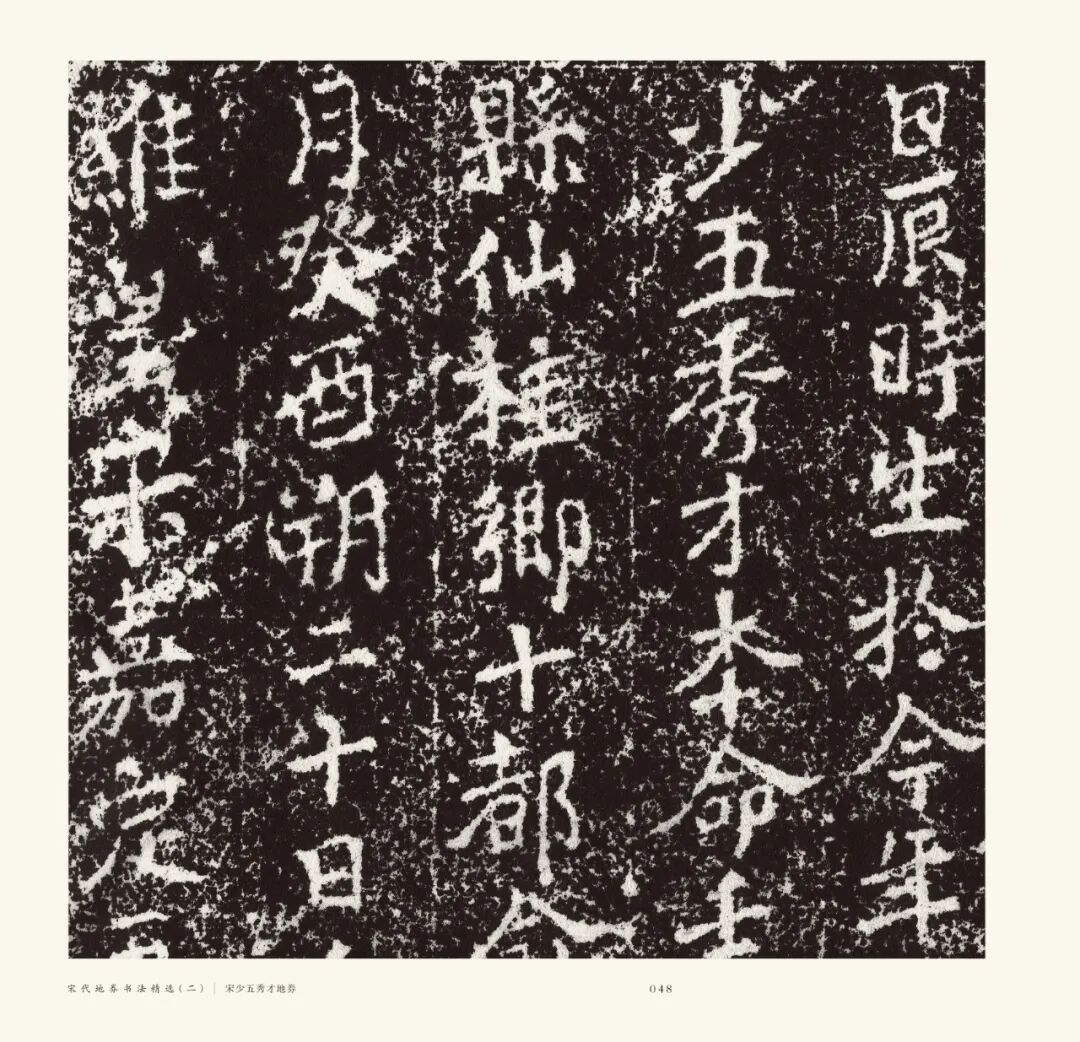 維宋嘉定
月癸酉朔二十日
縣仙桂鄉十都
少五秀才本命壬
日辰時生扵今年
宋代地券书法精选（二）｜宋少五秀才地券
048